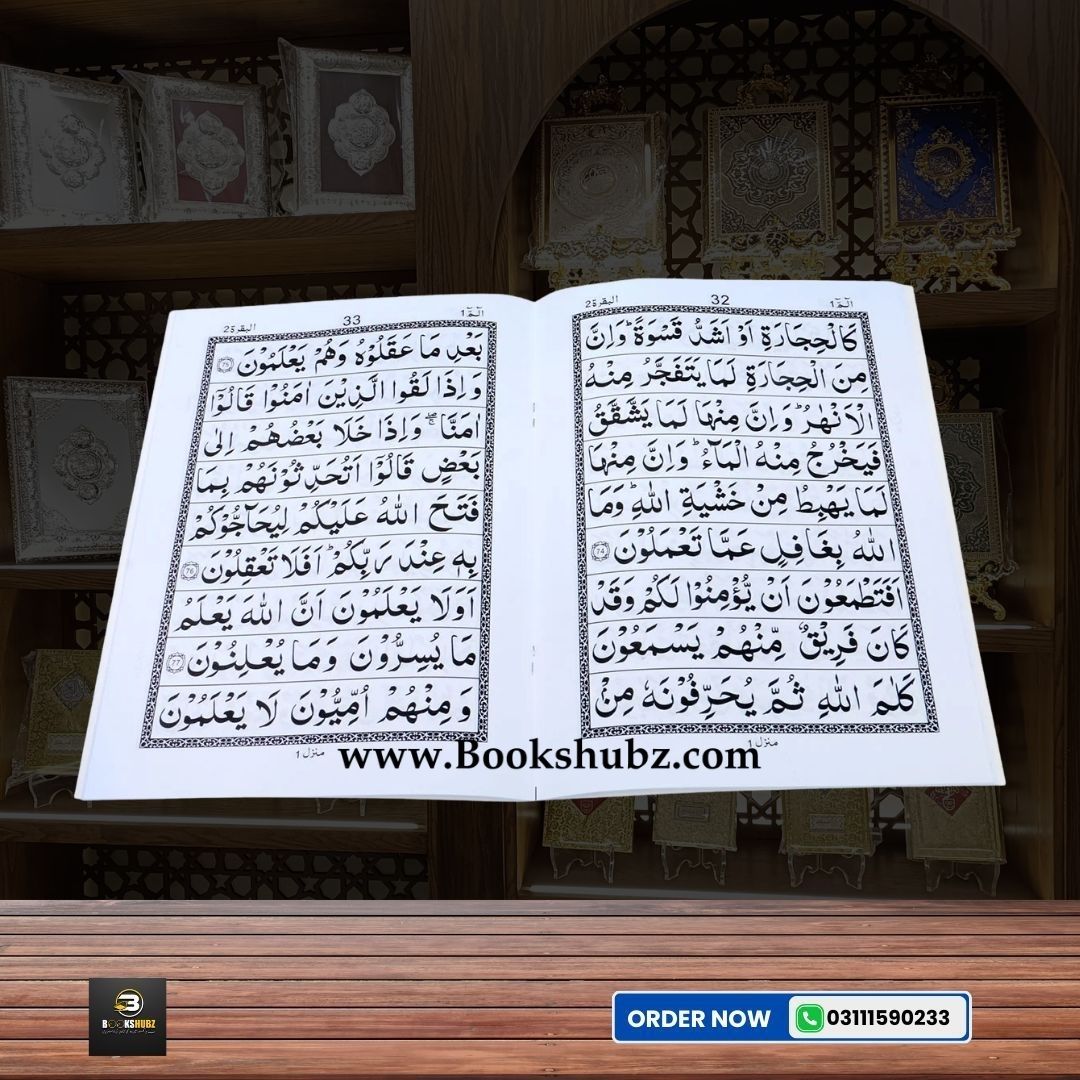 الٓمّٓ 1
32
البقرة 2
كَالْحِجَارَةِ اَوْ اَشَدُّ قَسْوَةً ؕ وَاِنَّ
مِنَ الْحِجَارَةِ لَمَا يَتَفَجَّرُ مِنْهُ
الْاَنْهٰرُ ؕ وَاِنَّ مِنْهَا لَمَا يَشَّقَّقُ
فَيَخْرُجُ مِنْهُ الْمَآءُ ؕ وَاِنَّ مِنْهَا
لَمَا يَهْبِطُ مِنْ خَشْيَةِ اللّٰهِ ؕ وَمَا
اللّٰهُ بِغَافِلٍ عَمَّا تَعْمَلُوْنَ 74
اَفَتَطْمَعُوْنَ اَنْ يُّؤْمِنُوْا لَكُمْ وَقَدْ
كَانَ فَرِيْقٌ مِّنْهُمْ يَسْمَعُوْنَ
كَلٰمَ اللّٰهِ ثُمَّ يُحَرِّفُوْنَهٗ مِنْۢ
منزل 1
الٓمّٓ 1
33
البقرة 2
بَعْدِ مَا عَقَلُوْهُ وَهُمْ يَعْلَمُوْنَ 75
وَاِذَا لَقُوا الَّذِيْنَ اٰمَنُوْا قَالُوْٓا
اٰمَنَّا ۖۚ وَاِذَا خَلَا بَعْضُهُمْ اِلٰى
بَعْضٍ قَالُوْٓا اَتُحَدِّثُوْنَهُمْ بِمَا
فَتَحَ اللّٰهُ عَلَيْكُمْ لِيُحَآجُّوْكُمْ
بِهٖ عِنْدَ رَبِّكُمْ ؕ اَفَلَا تَعْقِلُوْنَ 76
اَوَلَا يَعْلَمُوْنَ اَنَّ اللّٰهَ يَعْلَمُ
مَا يُسِرُّوْنَ وَمَا يُعْلِنُوْنَ 77
وَمِنْهُمْ اُمِّيُّوْنَ لَا يَعْلَمُوْنَ
منزل 1
www.Bookshubz.com
BOOKSHUBZ
ORDER NOW 03111590233